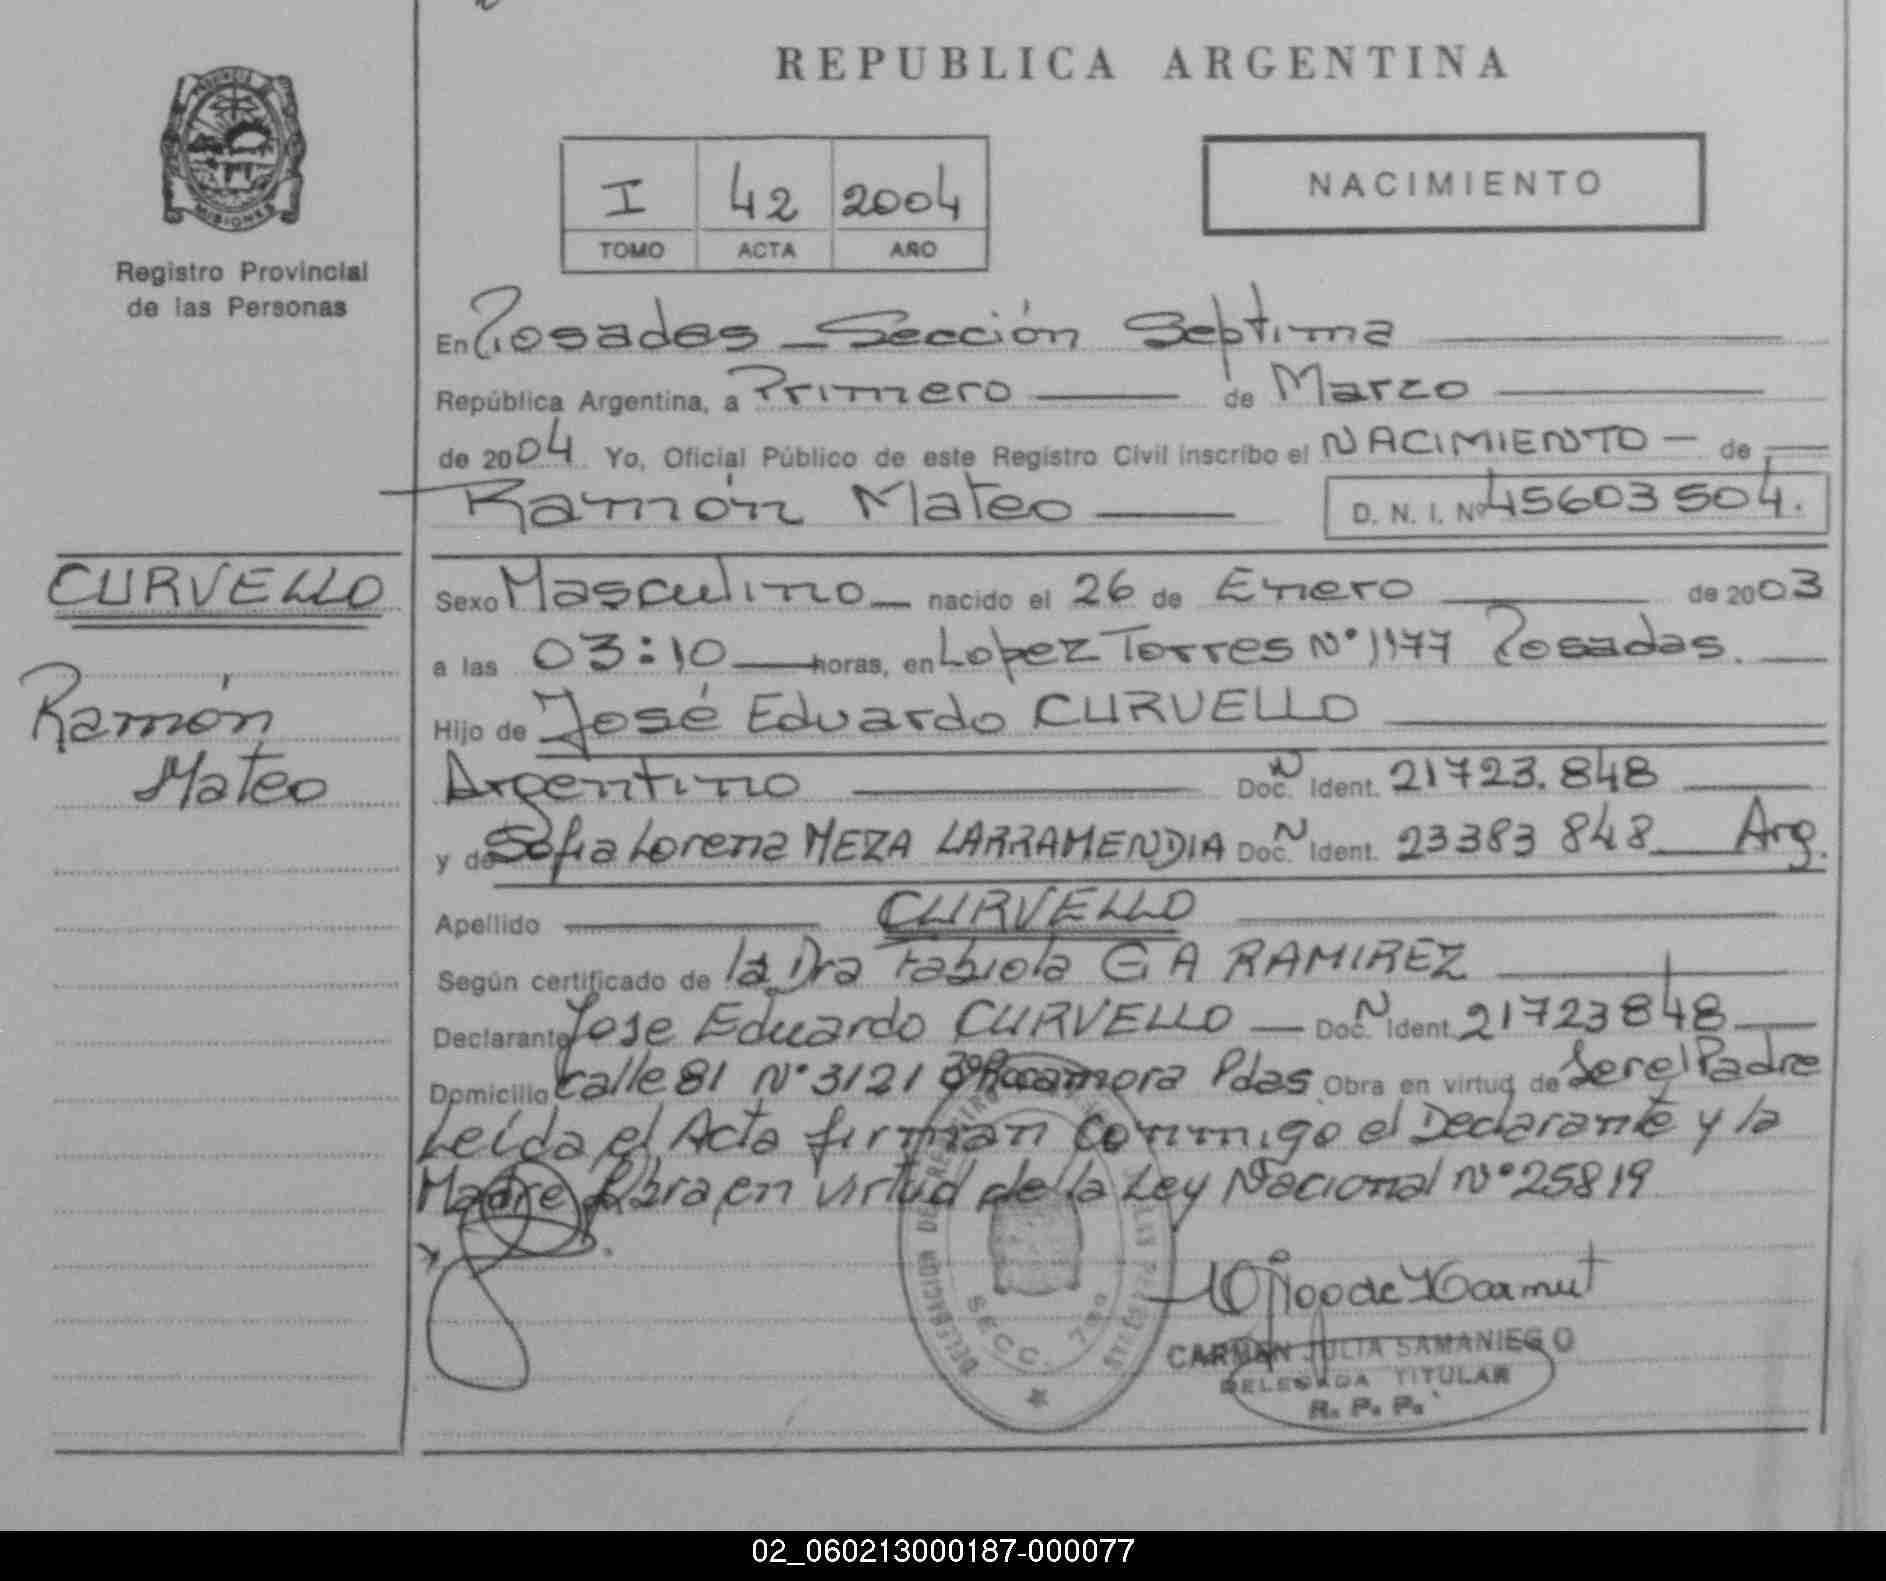 REPUBLICA ARGENTINA
PROVINCIA DE MISIONES
Registro Provincial
de las Personas
I 42 2004
TOMO ACTA AÑO
NACIMIENTO
En Posadas - Sección Septima
República Argentina, a Primero de Marzo
de 2004 Yo, Oficial Público de este Registro Civil inscribo el NACIMIENTO - de
Ramón Mateo D. N. I. Nº 45603504.
CURVELLO
Ramón
Mateo
Sexo Masculino nacido el 26 de Enero de 2003
a las 03:10 horas, en Lopez Torres Nº 1177 Posadas.
Hijo de José Eduardo CURVELLO
Argentino Doc. N Ident. 21723.848
y de Sofia Lorena MEZA LARRAMENDIA Doc. N Ident. 23383 848 Arg.
Apellido CURVELLO
Según certificado de la Dra Fabiola G A RAMIREZ
Declarante Jose Eduardo CURVELLO Doc. N Ident. 21723848
Domicilio Calle 81 Nº 3121 Rocamora Pdas Obra en virtud de Ser el Padre
Leída el Acta firman Conmigo el Declarante y la
Madre Obra en virtud de la Ley Nacional Nº 25819
DELEGACION DE REGISTRO
SECC. 7ma
CARMEN JULIA SAMANIEGO
DELEGADA TITULAR
R. P. P.
02_060213000187-000077